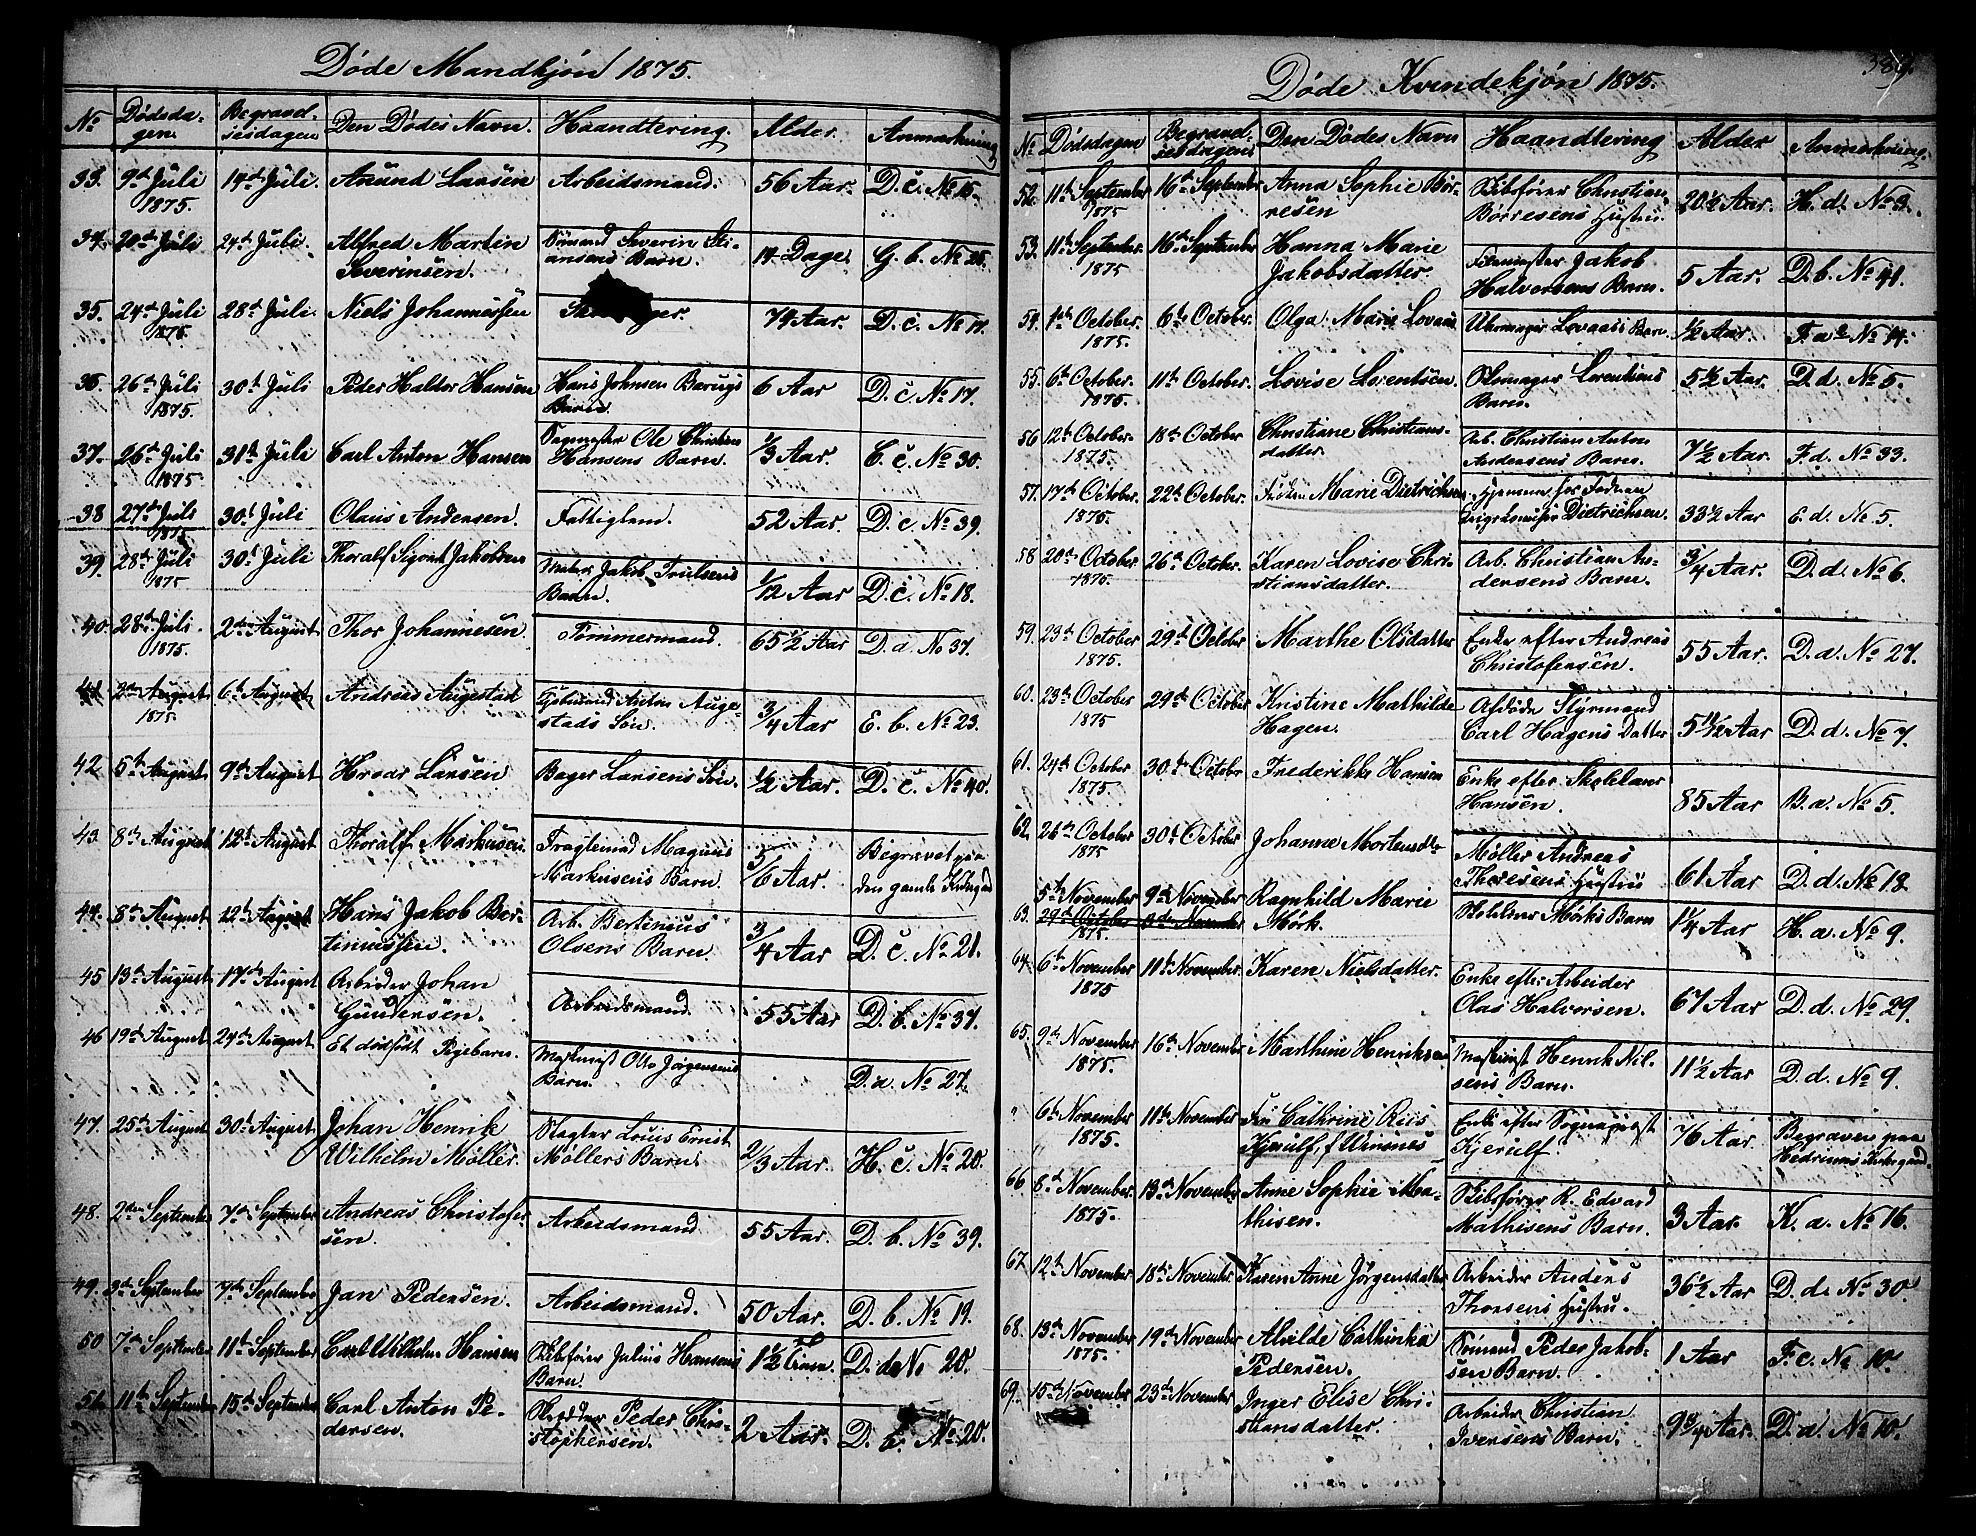 Døde Mandkjøn 1875.
No Dødsda- Begravel- Den Dødes Navn. Haandtering. Alder. Anmærkning
gen. sesdagen
33. 9de Juli 14de Juli. Anund Larsen Arbeidsmand. 56 Aar. D. c. No 15.
1875.
34. 20de Juli 24de Juli. Alfred Martin Sømand Severin 14 Dage. G. b. No 25.
Severinsen. Barn.
35. 24de Juli 28de Juli. Niels Johannessen 79 Aar. D. c. No 14.
1875.
36. 26de Juli 30te Juli Peder Haldor Hansen Hans Johnsen 6 Aar D. c. No 17.
1875. Barn.
37. 26de Juli 31te Juli Carl Anton Hansen Sagmester Ole Christian 1/3 Aar. C. c. No 30.
1875 Hansens Barn.
38 27de Juli 30te Juli Olaus Andersen. Fattiglem. 52 Aar D. c No 39.
1875
39. 28de Juli 30te Juli Thoralf Sigvart Jakobsen Jakob Trulsens 1/12 Aar D. c. No 18.
1875 Barn.
40. 28de Juli. 2den August Thor Johannesen. Tømmermand. 65 1/2 Aar D. a. No 37.
1875.
41. 2den August 6te August Andreas Augestad Anton Auge- 3/4 Aar E. b. No 23.
1875 stads Søn.
42 5te August 9de August Hroar Larsen Bager Larsens Søn. 1/2 Aar. D. c. No 40.
43. 8de August 12te August Thoralf Markusen. Magnus 5/6 Aar. Begravet paa
Markusens Barn. den gamle Kirkegaard
44. 8de August 12te August Hans Jakob Ber- Arb. Bertinius 3/4 Aar D. c. No 21.
tiniussen. Olsens Barn.
45 13de August 17de August Arbeider Johan Arbeidsmand 55 Aar D. b. No 37.
Gundersen.
46 19de August 24de August Et dødfødt Pigebarn. Maskinist Otto Jørgensens D. a. No 27.
Barn.
47. 25de August 30te August Johan Henrik Slagter Louis Ernst 2/3 Aar. H. c. No 20.
Wilhelm Møller. Møllers Barn.
48. 2den September 7de September Andreas Christofer- Arbeidsmand 55 Aar. D. b. No 39.
sen.
49. 3de September 7de September Jan Pedersen. Arbeidsmand. 50 Aar. D. b. No 19.
50 7de September 11te September Carl Wilhelm Hansen Skibsfører Julius Hansens 1 1/2 D. d. No 20.
Barn.
51. 11te September 15de September Carl Anton Pe- Peder Chri- 2 Aar. D. b. No 20.
dersen. stophersen.
Døde Kvindekjøn 1875.
389.
No Dødsdagen Begravel- Den Dødes Navn Haandtering Alder Anmærkning.
sesdagens
52. 11te September 16de September Anna Sophie Bør- Skibsfører Christian 20 1/2 Aar. H. d. No 3.
1875 resen Børresens Hustru.
53. 11te September. 16de September Hanna Marie Jakob 5 Aar. D. b. No 41.
1875 Jakobsdatter. Halvorsens Barn.
54. 1ste October. 6te October. Olga Marie Lovaas Uhrmager Lovaas's Barn. 1/2 Aar. F. a No 14.
1875.
55. 6te October. 11te October. Lovise Lorentsen. Skomager Lorentsens 5 1/2 Aar. D. d. No 5.
1875. Barn.
56 12te October. 18de October Christiane Christians- Arb. Christian Anton 7 1/2 Aar. F. d. No 33.
1875. datter. Andersens Barn.
57. 17de October. 22de October. Marie Dietrichsen 33 1/2 Aar E. d. No 5.
1875 Dietrichsen.
58. 20de October 26de October. Karen Lovise Chri- Arb. Christian An- 3/4 Aar. D. d. No 6.
1875. stiansdatter. dersens Barn.
59. 23de October 29de October Marthe Olsdatter Enke efter Andreas 55 Aar. D. a. No 27.
1875. Christofersen.
60. 23de October 29de October Kristine Mathilde Afdøde Styrmand D. d. No 7.
1875 Hagen. Carl Hagens Datter
61. 24de October 30te October Frederikke Hansen Enke efter Skolelærer 85 Aar B. a. No 5.
1875. Hansen.
62. 26de October 30te October Johanne Mortensdtr Møller Andreas 61 Aar D. d. No 18
1875 Thoresens Hustru
5te November 9de November Ragnhild Marie Skolelærer Mørks Barn 1 1/4 Aar H. a. No 9.
63. 29de October 3die November Mørk.
1875.
64. 6te November 11te November. Karen Nielsdatter. Enke efter Arbeider 67 Aar D. d. No 29.
1875 Olas Halvorsen.
65. 9de November 16de November Marthine Henriksen Maskinist Henrik Nil- 11 1/2 Aar D. d. No 9.
1875. sens Barn.
" 6te November 11te November Cathrine Riis Enke efter Sogneprest 76 Aar. Begraven paa
1875. Kjerulf, f. Winsnes Kjerulf. Hedrums Kirkegaard.
66 8de November. 13de November Anne Sophie Ma- Skibsfører R. Edvard 3 Aar. K. a. No 16.
1875. thisen. Mathisens Barn.
67. 12te November 18de November Karen Anne Jørgensdatter Arbeider Anders 36 1/2 Aar D. d. No 30.
Thorsens Hustru.
68. 13de November 19de November Alvilde Cathinka Sømand Peder Jakob- 1 Aar F. c. No 10.
1875. Pedersen. sen Barn.
69. 15de November 23de November Inger Elise Chri- Arbeider Christian 9 3/4 Aar. D. a. No 10.
stiansdatter. Iversens Barn.